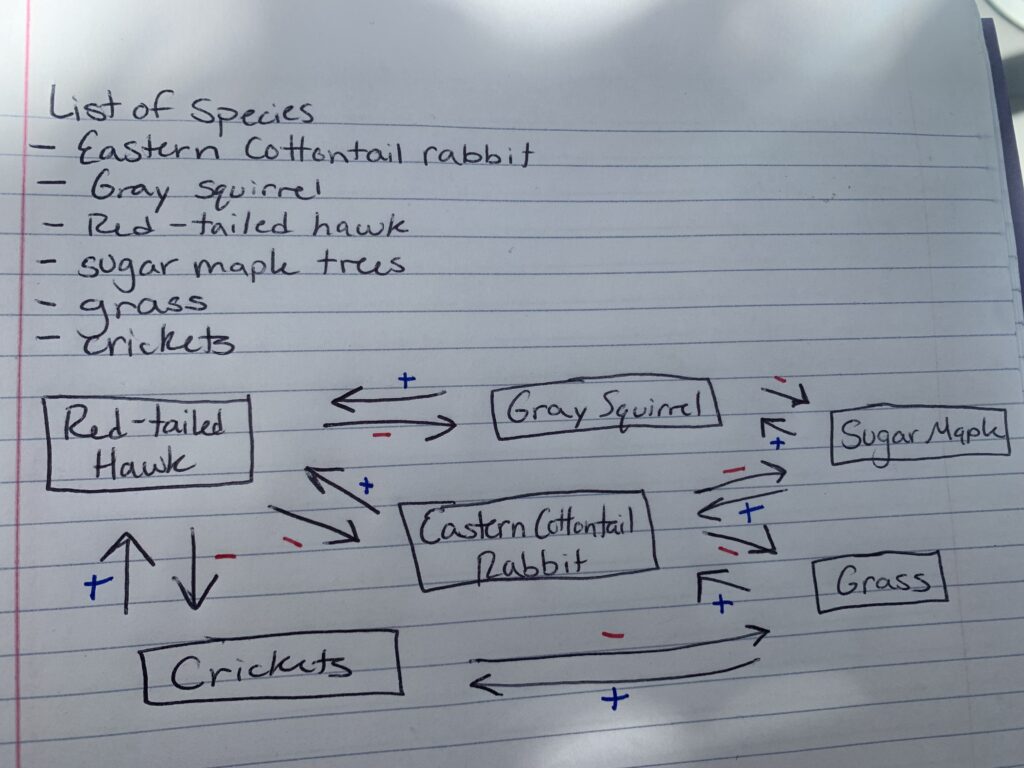 List of Species
- Eastern Cottontail rabbit
- Gray squirrel
- Red-tailed hawk
- sugar maple trees
- grass
- crickets
+
-
Red-tailed
Hawk
Gray Squirrel
-
+
Sugar Maple
+
-
Eastern Cottontail
Rabbit
-
+
-
+
Grass
+
-
Crickets
-
+